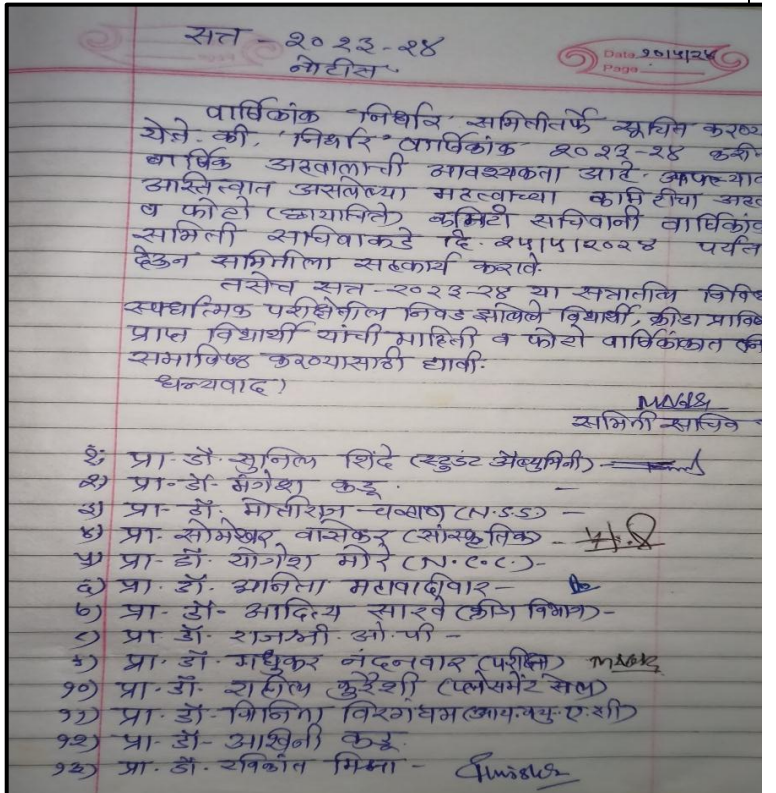 सत्त - २०२३-२४
नोटीस
Date १०/५/२४
Page
वार्षिकांक 'निर्धार' समितीतर्फे सूचित करण्य
येते की, 'निर्धार' वार्षिकांक २०२३-२४ करी
वार्षिक अहवालाची आवश्यकता आहे. आपल्या
अस्तित्वात असलेल्या महत्वाच्या कमिटीचा अह
व फोटो (छायाचित्रे) कमिटी सचिवानी वार्षिकां
समिती सचिवाकडे दि. २५/५/२०२४ पर्यंत
देऊन समितीला सहकार्य करावे.
तसेच सत्त-२०२३-२४ या सत्रातील विविध
स्पर्धात्मक परीक्षेतील निवड झालेले विद्यार्थी, क्रीडा प्रावि
प्राप्त विद्यार्थी यांची माहिती व फोटो वार्षिकांकात
समाविष्ठ करण्यासाठी द्यावी.
धन्यवाद!
समिती सचिव
१) प्रा. डॉ. सुनिल शिंदे (स्टुडंट अॅल्युमिनी) -
२) प्रा. डॉ. मंगेश कडू. -
३) प्रा. डॉ. मोतीराम चव्हाण (N.S.S) -
४) प्रा. सोमेश्वर वासेकर (सांस्कृतिक) -
५) प्रा. डॉ. योगेश मोरे (N.C.C.) -
६) प्रा. डॉ. अनिता महावादीवार -
७) प्रा. डॉ. आदित्य सारवे (क्रीडा विभाग) -
८) प्रा. डॉ. राजश्री. ओ. पी -
९) प्रा. डॉ. मधुकर नंदनवार (परीक्षा)
१०) प्रा. डॉ. राहील कुरैशी (प्लेसमेंट सेल)
११) प्रा. डॉ. विनिता विरगंधम (आय.क्यु.ए.सी)
१२) प्रा. डॉ. अश्विनी कडू.
१३) प्रा. डॉ. रविकांत मिश्रा -